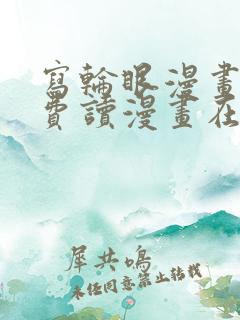 寫輪眼漫畫
費讀漫畫在
犀共鳴
未經同意禁止轉載